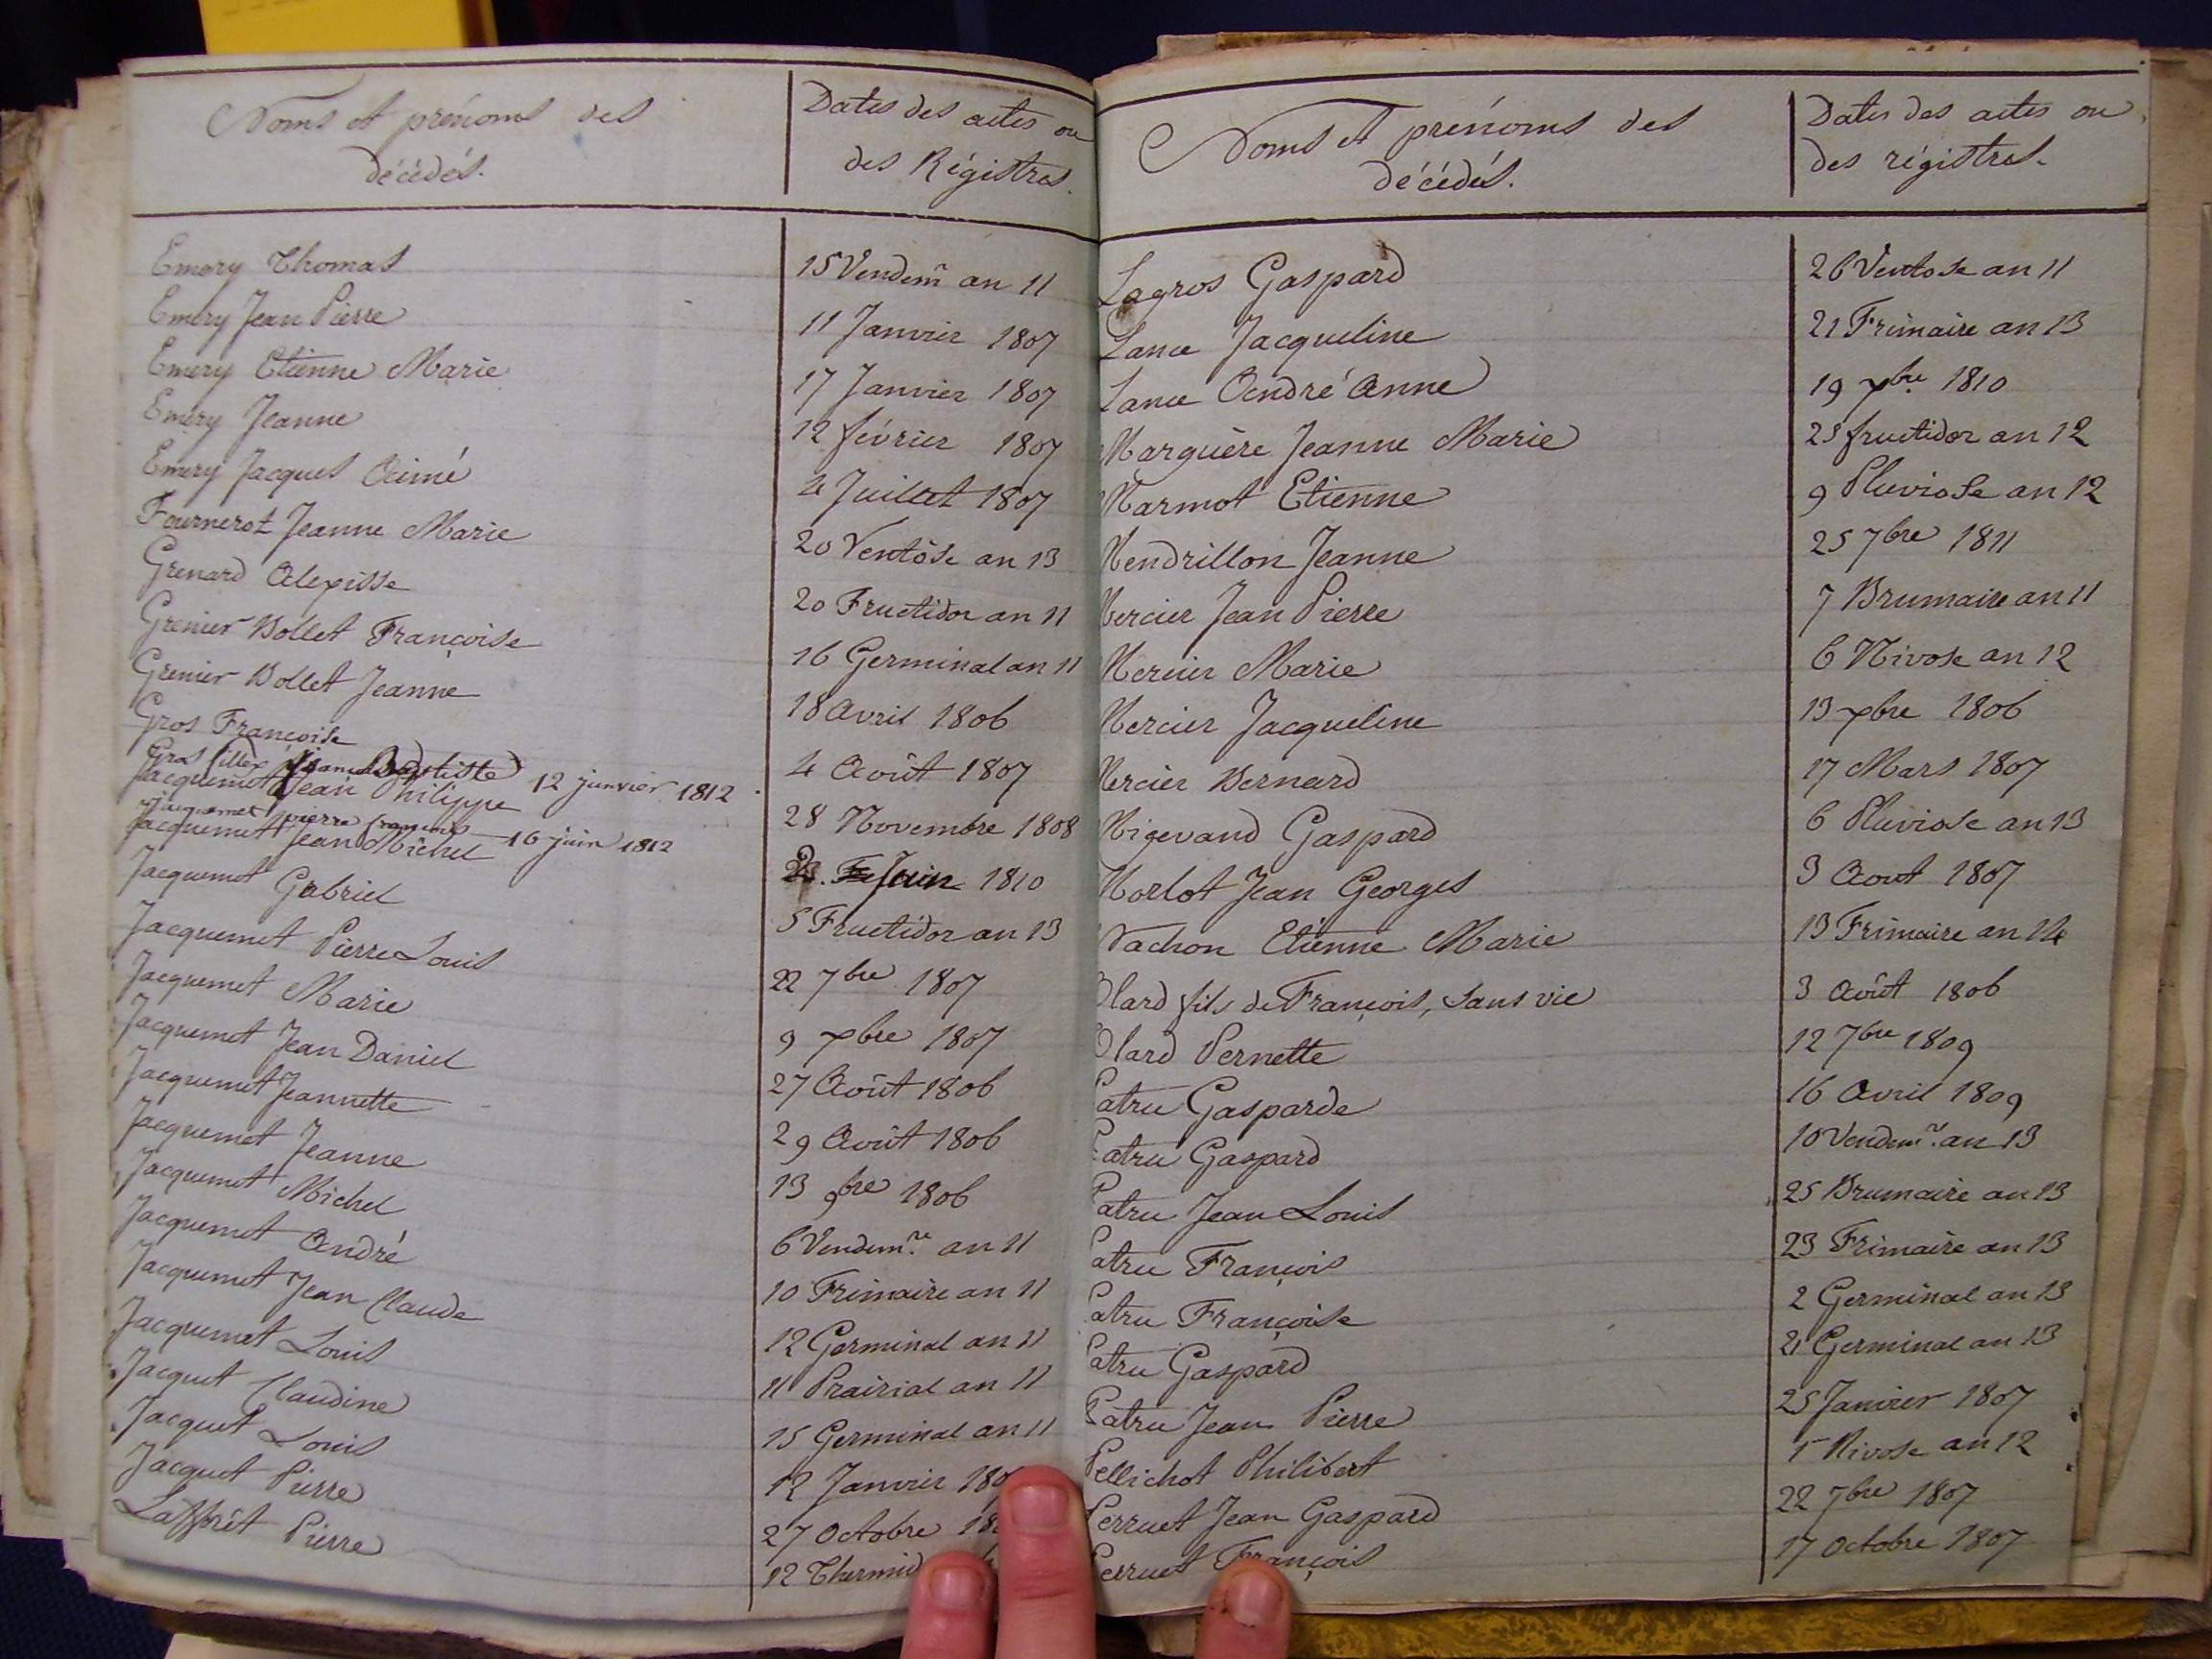 Noms et prénoms des
décédés.
Dates des actes ou
des Régistres.
Emery Thomas 15 Vendem.re an 11
Emery Jean Pierre 11 Janvier 1807
Emery Etienne Marie 17 Janvier 1807
Emery Jeanne 12 février 1807
Emery Jacques Aimé 4 Juillet 1807
Fournerot Jeanne Marie 20 Ventôse an 13
Grenard Alexisse 20 Fructidor an 11
Grenier Bollet Françoise 16 Germinal an 11
Grenier Bollet Jeanne 18 Avril 1806
Gros Françoise 4 Août 1807
Gros fillex Jean Baptiste 12 janvier 1812
Jacquemet Jean Philippe 28 Novembre 1808
jacquemet pierre françois 16 juin 1812
Jacquemet Jean Michel Juin 1810
Jacquemet Gabriel 5 Fructidor an 13
Jacquemet Pierre Louis 22 7bre 1807
Jacquemet Marie 9 xbre 1807
Jacquemet Jean Daniel 27 Août 1806
Jacquemet Jeannette 29 Août 1806
Jacquemet Jeanne 13 9bre 1806
Jacquemet Michel 6 Vendem.re an 11
Jacquemet André 10 Frimaire an 11
Jacquemet Jean Claude 12 Germinal an 11
Jacquemet Louis 11 Prairial an 11
Jacquet Claudine 15 Germinal an 11
Jacquet Louis 12 Janvier
Jacquet Pierre 27 Octobre
Pierre 12 Thermid
Noms et prénoms des
décédés.
Dates des actes ou
des régistres.
Lagros Gaspard 26 Ventose an 11
Lance Jacqueline 21 Frimaire an 13
Lance André Anne 19 xbre 1810
Marguère Jeanne Marie 25 fructidor an 12
Marmot Etienne 9 Pluviose an 12
Mendrillon Jeanne 25 7bre 1811
Mercier Jean Pierre 7 Brumaire an 11
Mercier Marie 6 Nivose an 12
Mercier Jacqueline 13 xbre 1806
Mercier Bernard 17 Mars 1807
Migevand Gaspard 6 Pluviose an 13
Morlot Jean Georges 3 Aout 1807
Nachon Etienne Marie 13 Frimaire an 14
Olard fils de François, sans vie 3 Août 1806
Olard Pernette 12 7bre 1809
Patru Gasparde 16 Avril 1809
Patru Gaspard 10 Vendem.re an 13
Patru Jean Louis 25 Brumaire an 13
Patru François 23 Frimaire an 13
Patru Françoise 2 Germinal an 13
Patru Gaspard 21 Germinal an 13
Patru Jean Pierre 25 Janvier 1807
Pellichot Philibert Nivose an 12
Perruet Jean Gaspard 22 7bre 1807
Perruet François 17 Octobre 1807